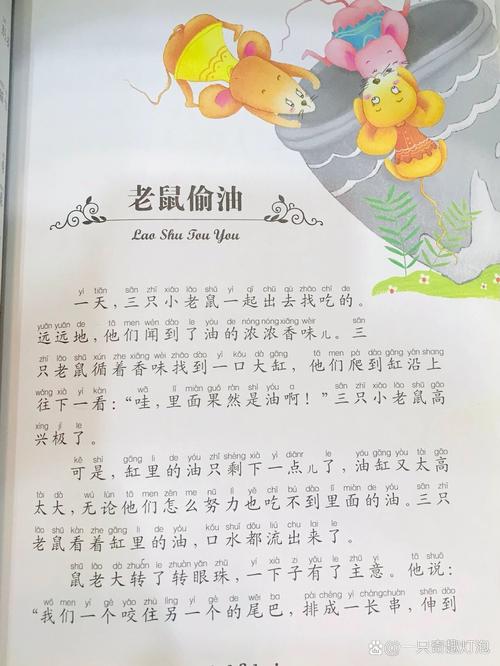 老鼠偷油
Lao Shu Tou You
yì tiān sān zhī xiǎo lǎo shǔ yì qǐ chū qù zhǎo chī de
一天，三只小老鼠一起出去找吃的。
yuǎn yuǎn de tā men wén dào le yóu de nóng nóng xiāng wèir sān
远远地，他们闻到了油的浓浓香味儿。三
zhī lǎo shǔ xún zhe xiāng wèi zhǎo dào yì kǒu dà gāng tā men pá dào gāng yán shang
只老鼠循着香味找到一口大缸，他们爬到缸沿上
wǎng xià yí kàn wā lǐ miàn guǒ rán shì yóu a sān zhī xiǎo lǎo shǔ gāo
往下一看：“哇，里面果然是油啊！”三只小老鼠高
xìng jí le
兴极了。
kě shì gāng li de yóu zhǐ shèng xià yì diǎnr le yóu gāng yòu tài gāo
可是，缸里的油只剩下一点儿了，油缸又太高
tài dà wú lùn tā men zěn me nǔ lì yě chī bú dào lǐ miàn de yóu sān zhī
太大，无论他们怎么努力也吃不到里面的油。三只
lǎo shǔ kàn zhe gāng li de yóu kǒu shuǐ dōu liú chu lai le
老鼠看着缸里的油，口水都流出来了。
shǔ lǎo dà zhuàn le zhuàn yǎn zhū yí xià zi yǒu le zhǔ yi tā shuō
鼠老大转了转眼珠，一下子有了主意。他说：
wǒ men yí gè yǎo zhù lìng yí gè de wěi ba pái chéng yì cháng chuàn shēn dào
“我们一个咬住另一个的尾巴，排成一长串，伸到
一只奇趣灯泡